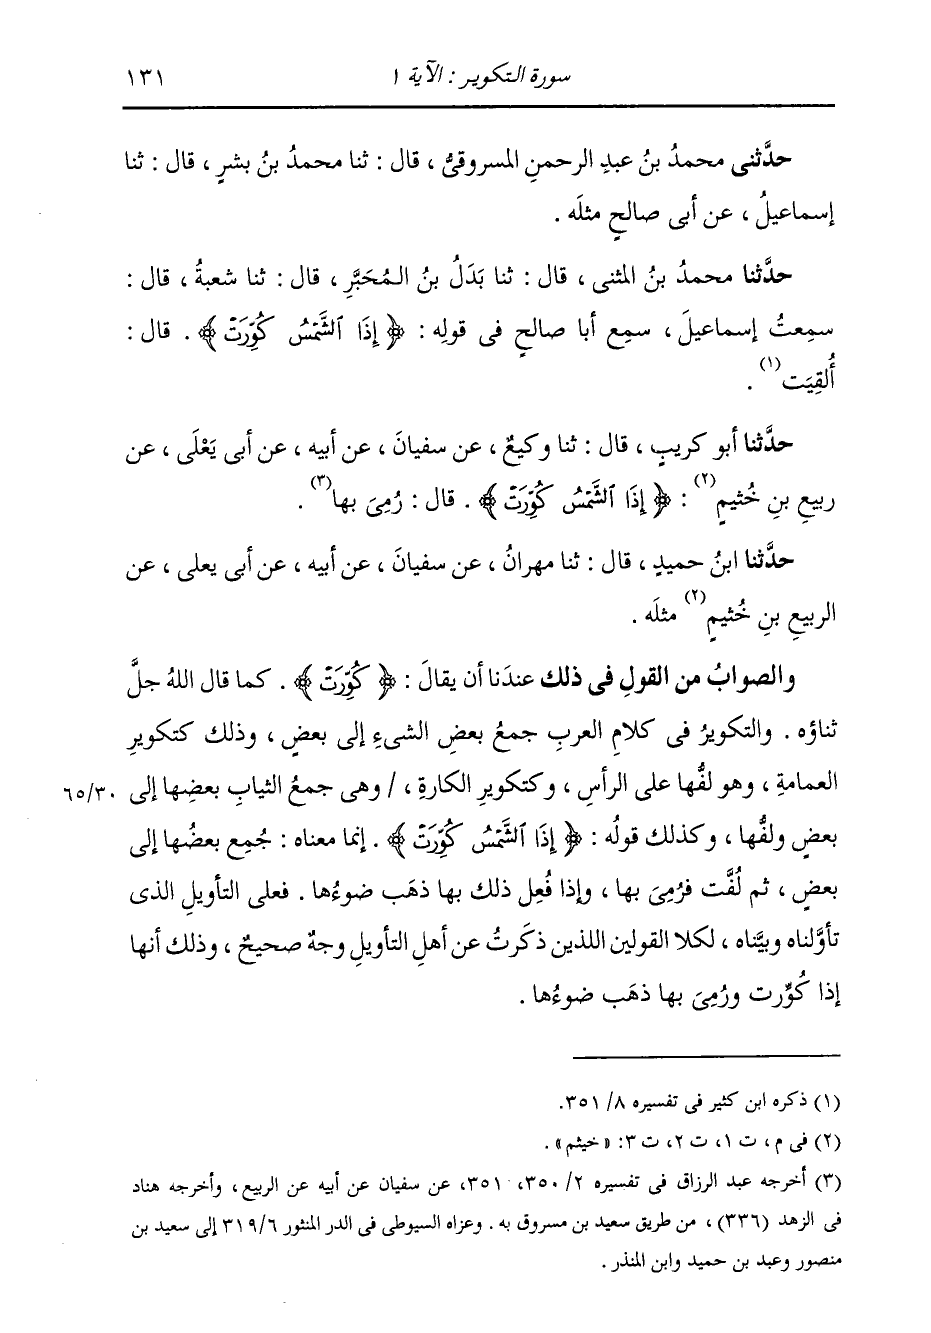 سورة التكوير : الآية ١ ١٣١
حدَّثنى محمدُ بنُ عبدِ الرحمنِ المسروقىُّ ، قال : ثنا محمدُ بنُ بشرٍ ، قال : ثنا
إسماعيلُ ، عن أبى صالحٍ مثلَه .
حدَّثنا محمدُ بنُ المثنى ، قال : ثنا بَدَلُ بنُ المُحَبَّرِ ، قال : ثنا شعبةُ ، قال :
سمِعتُ إسماعيلَ ، سمِع أبا صالحٍ فى قولِه : ﴿ إِذَا ٱلشَّمْسُ كُوِّرَتْ ﴾ . قال :
أُلقِيَت(١) .
حدَّثنا أبو كريبٍ ، قال : ثنا وكيعٌ ، عن سفيانَ ، عن أبيه ، عن أبى يَعْلَى ، عن
ربيعِ بنِ خُثيمٍ(٢) : ﴿ إِذَا ٱلشَّمْسُ كُوِّرَتْ ﴾ . قال : رُمِىَ بها(٣) .
حدَّثنا ابنُ حميدٍ ، قال : ثنا مهرانُ ، عن سفيانَ ، عن أبيه ، عن أبى يعلى ، عن
الربيعِ بنِ خُثيمٍ(٢) مثلَه .
والصوابُ من القولِ فى ذلك عندَنا أن يقالَ : ﴿ كُوِّرَتْ ﴾ . كما قال اللهُ جلَّ
ثناؤه . والتكويرُ فى كلامِ العربِ جمعُ بعضِ الشىءِ إلى بعضٍ ، وذلك كتكويرِ
العمامةِ ، وهو لفُّها على الرأسِ ، وكتكويرِ الكارةِ ، / وهى جمعُ الثيابِ بعضِها إلى ٦٥/٣٠
بعضٍ ولفُّها ، وكذلك قولُه : ﴿ إِذَا ٱلشَّمْسُ كُوِّرَتْ ﴾ . إنما معناه : جُمِع بعضُها إلى
بعضٍ ، ثم لُفَّت فرُمِىَ بها ، وإذا فُعِل ذلك بها ذهَب ضوءُها . فعلى التأويلِ الذى
تأوَّلناه وبيَّناه ، لكلا القولين اللذين ذكَرتُ عن أهلِ التأويلِ وجهٌ صحيحٌ ، وذلك أنها
إذا كُوِّرت ورُمِىَ بها ذهَب ضوءُها .
(١) ذكره ابن كثير فى تفسيره ٨/ ٣٥١.
(٢) فى م ، ت ١، ت ٢، ت ٣: « خيثم » .
(٣) أخرجه عبد الرزاق فى تفسيره ٢/ ٣٥٠، ٣٥١، عن سفيان عن أبيه عن الربيع ، وأخرجه هناد
فى الزهد (٣٣٦) ، من طريق سعيد بن مسروق به . وعزاه السيوطى فى الدر المنثور ٣١٩/٦ إلى سعيد بن
منصور وعبد بن حميد وابن المنذر .